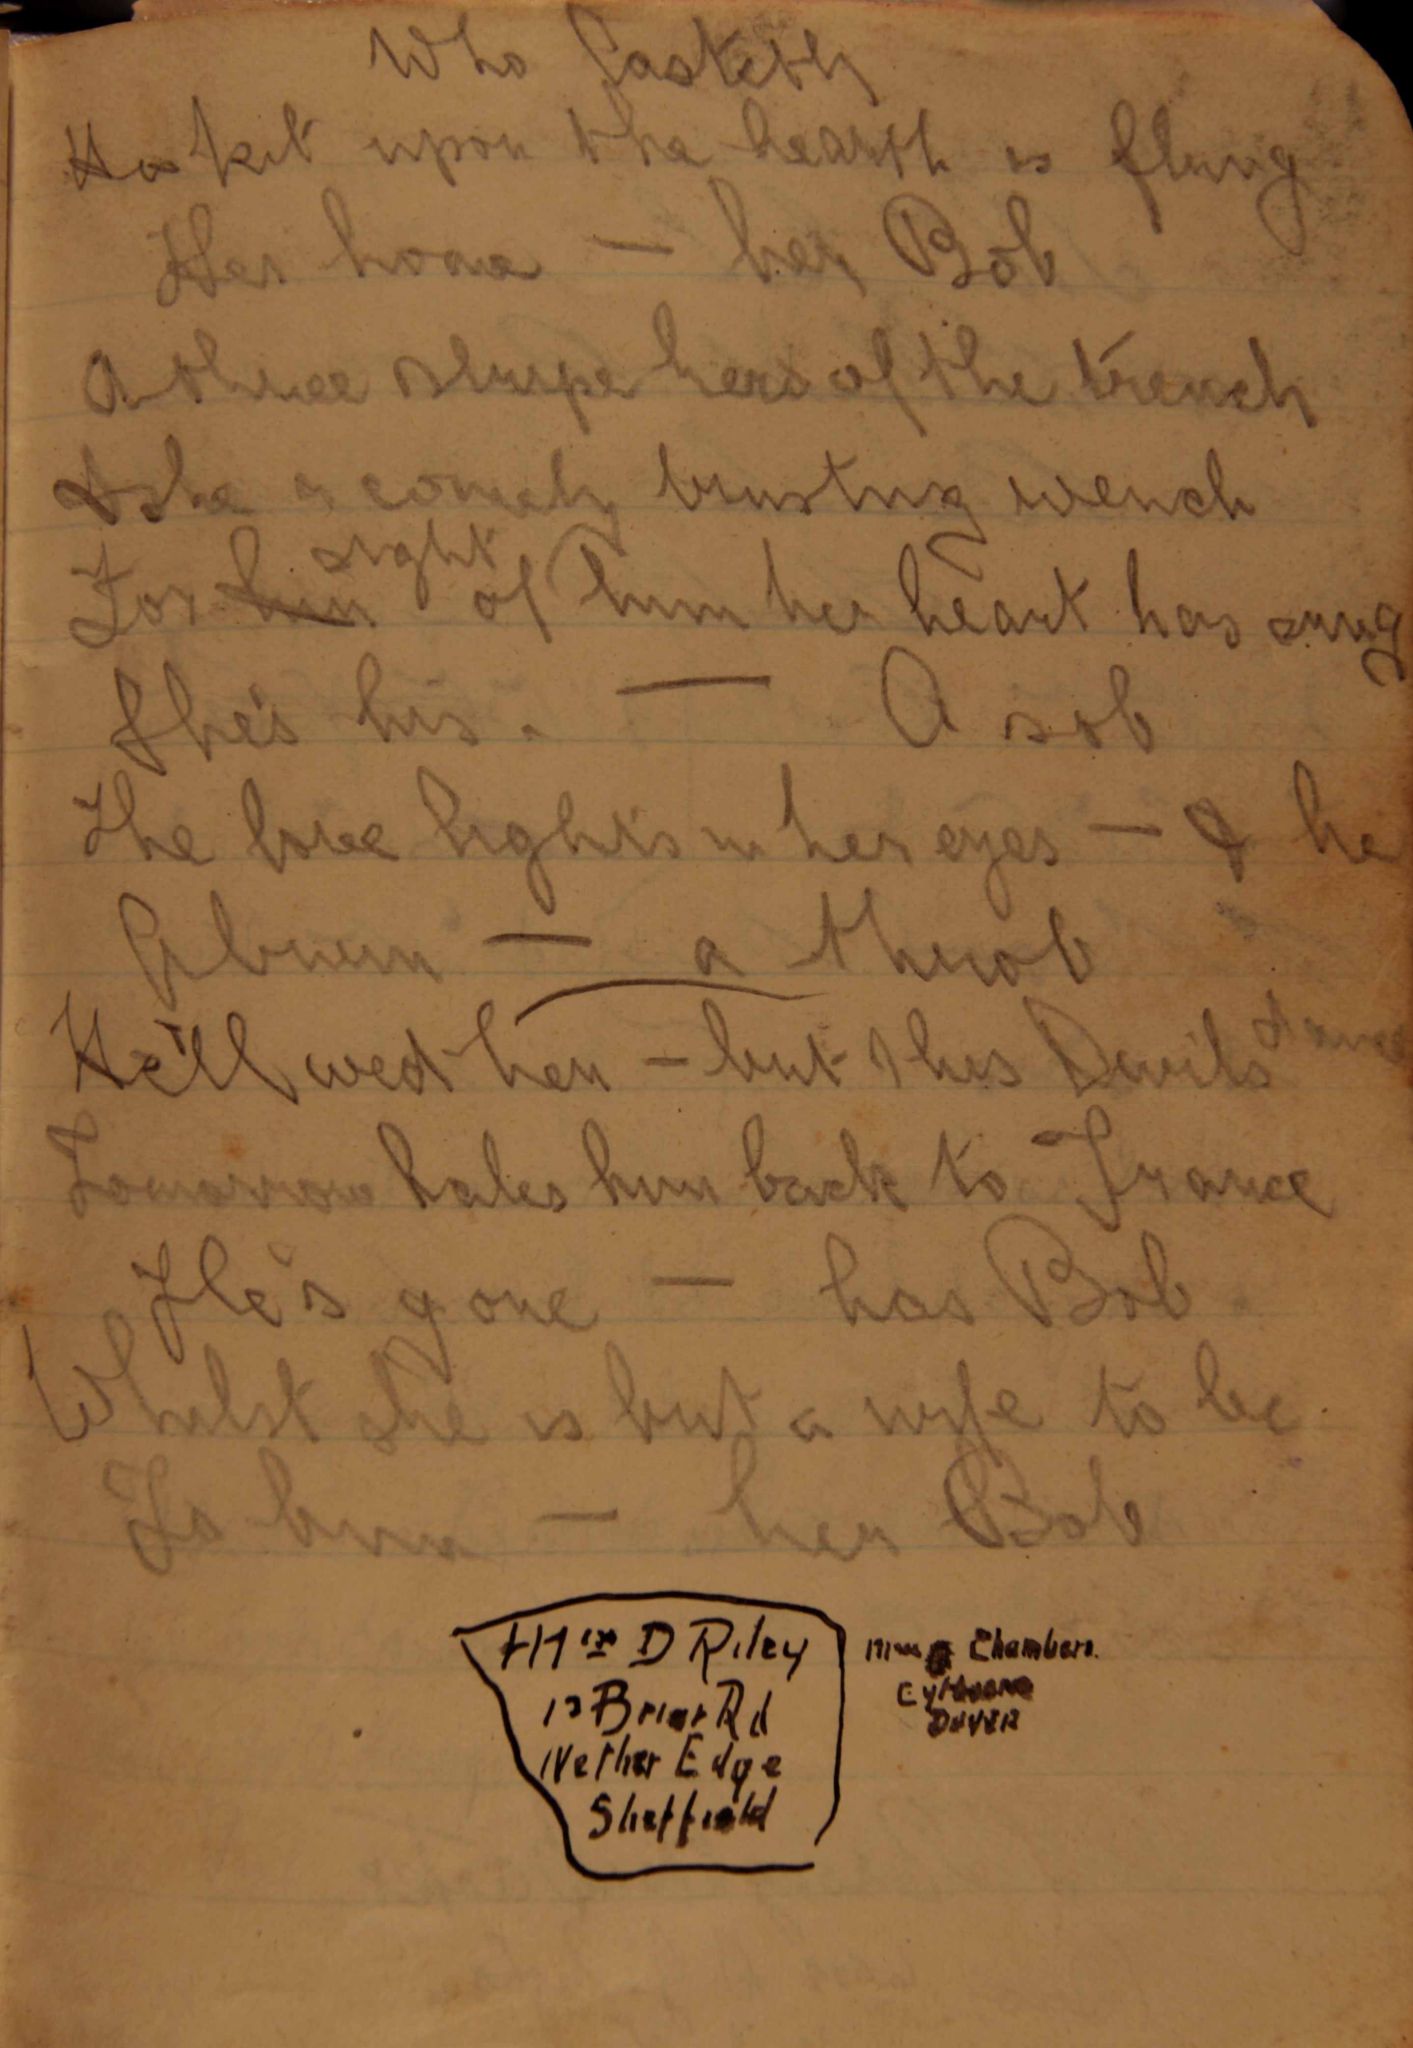 Who
His kit upon the hearth is flung
Hes home — her Bob
A three stripe hero of the trench
& she a comely trusting wench
For him sight of him her heart has sung
She's his. — A sob
The love lights in her eyes — & he
— a throb
He'll wed her — but this Devils dance
Tomorrow hales him back to France
He's gone — has Bob
Whilst she is but a wife to be
To him — her Bob
D Riley
Briar Rd
Nether Edge
Sheffield
Chambers.
Eythorne
DOVER